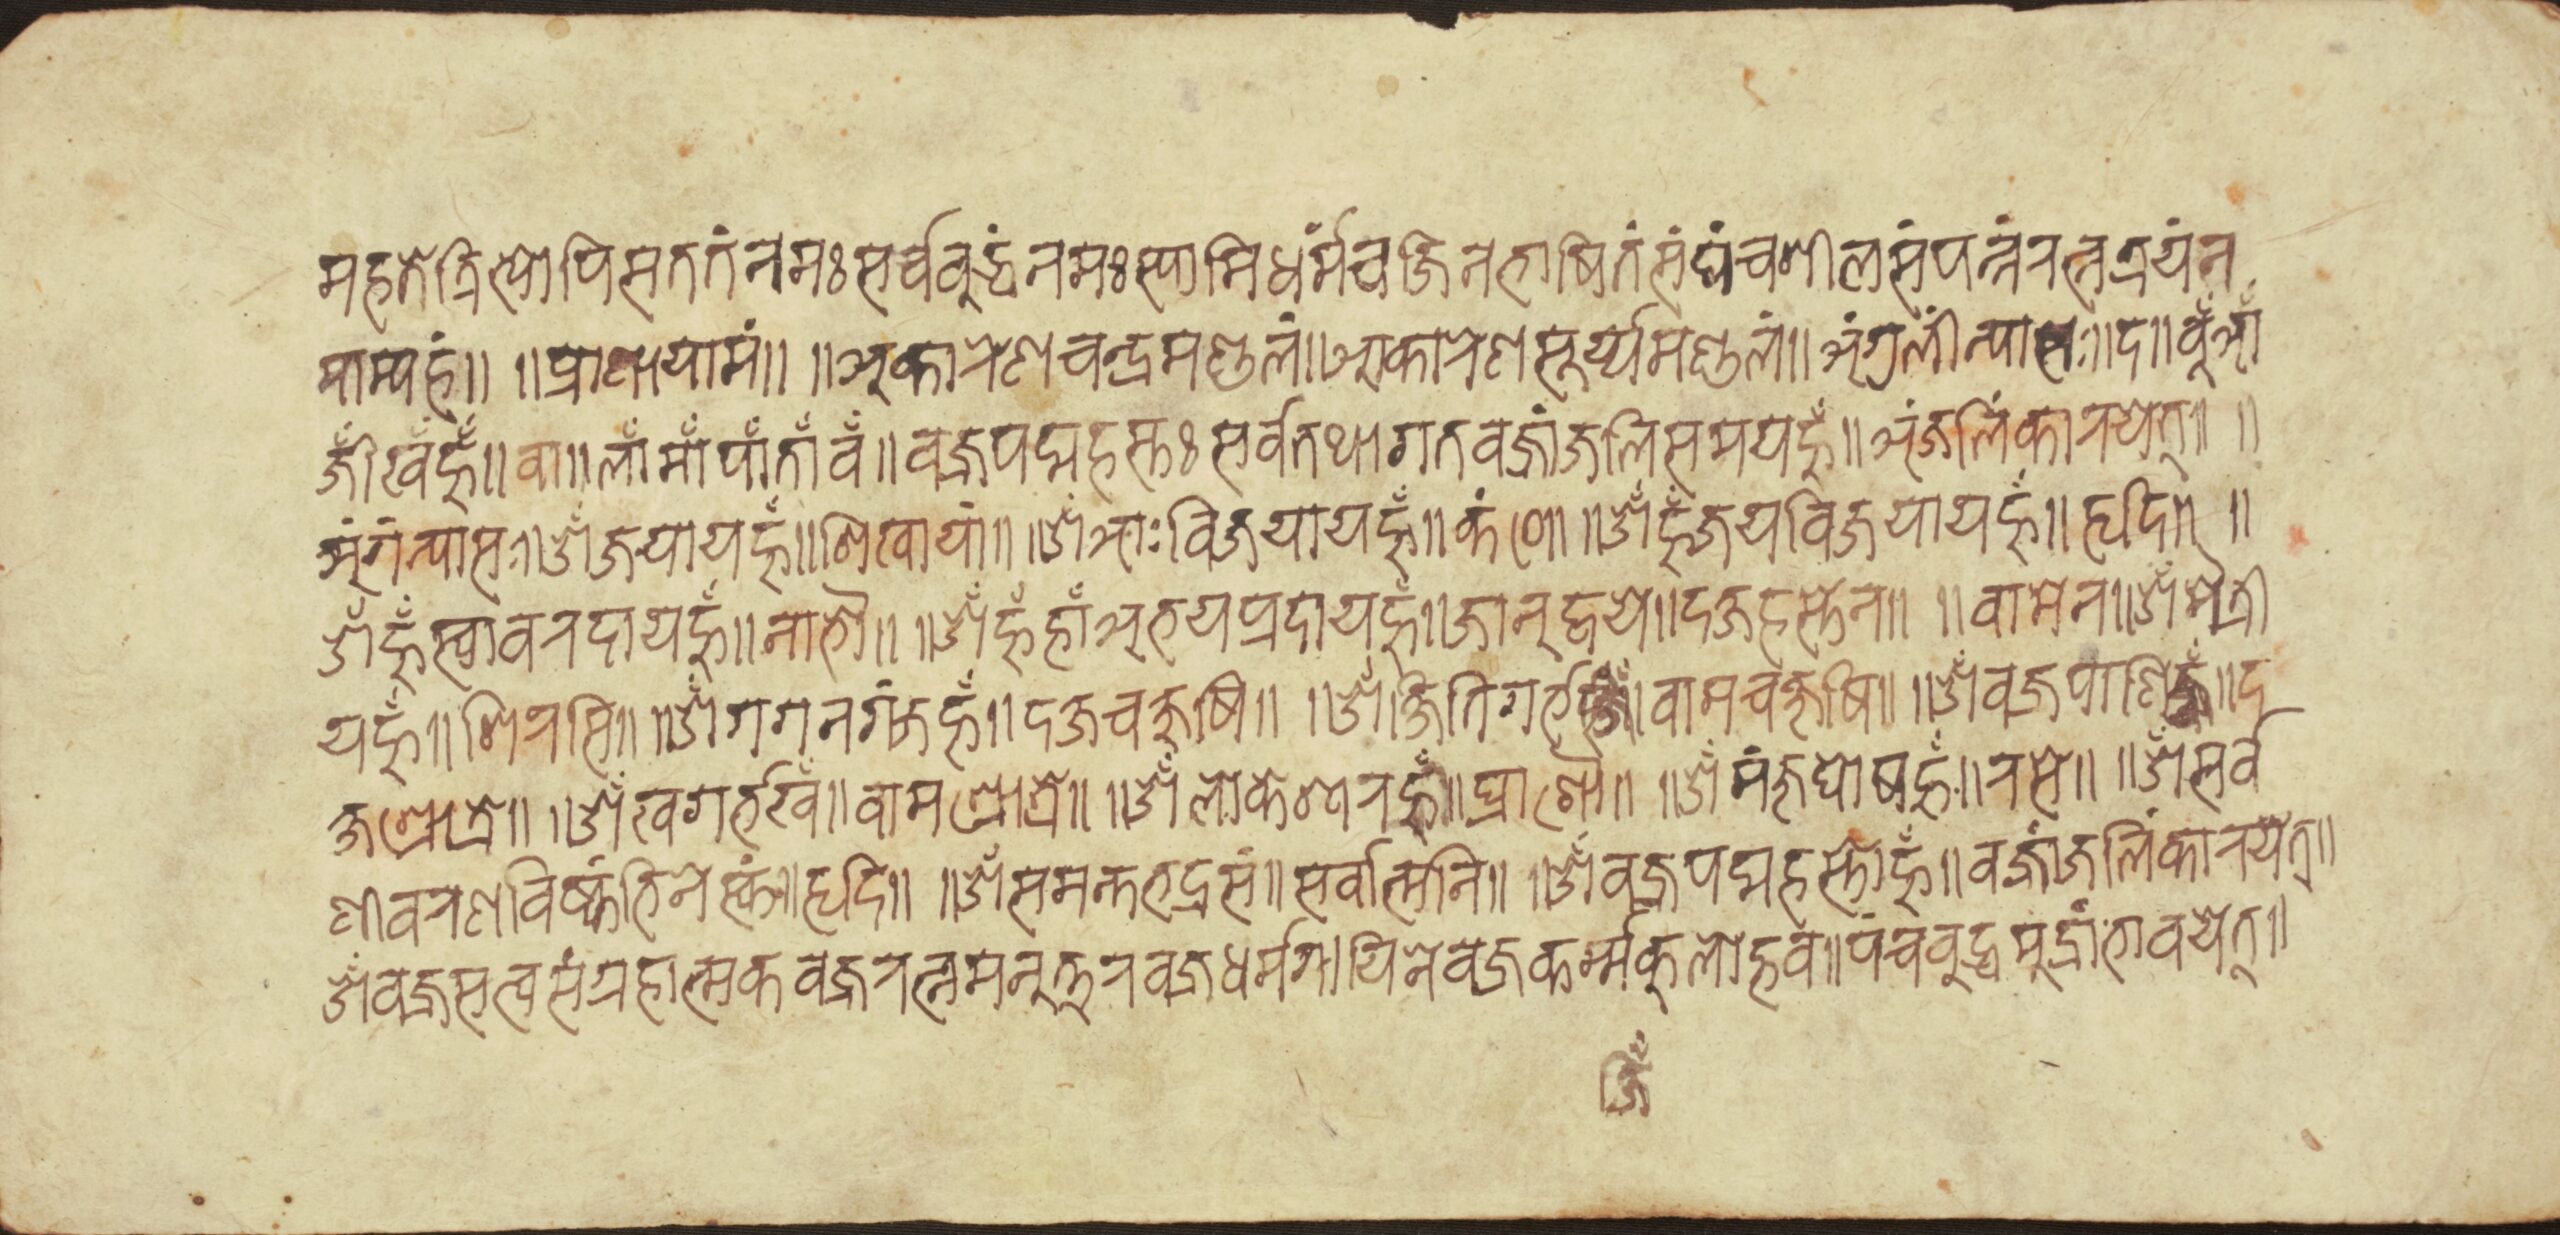 महते त्रित्योपिसततंनमः सर्व्वबुद्धंनमःस्यामिधर्मंचजिनभाषितंसंघंचशीलसंपन्नंरत्नत्रयंन
माम्यहं॥ ॥प्राणायामं॥ ॥अकारेणचन्द्रमण्डलं॥आकारेणसूर्य्यमण्डलं॥अंगुलीन्यासः॥द॥वुँआँ
जीँखँहूँ॥वा॥लाँमाँपाँताँवँ॥वज्रपद्महस्तः सर्वतथागतवज्रांजलिसमयहूँ॥अंजलिंकारयेत्॥ ॥
अंगंन्यासः॥ॐजयायहूँ॥शिखायां॥ ॥ॐआःविजयायहूँ॥कंणे॥ ॥ॐहूँजयविजयायहूँ॥हृदि॥ ॥
ॐहूँस्वावरदायहूँ॥नाभौ॥ ॥ॐहूँहाँअभयप्रदायहूँ॥जानूद्वये॥दक्षहस्तेन॥ ॥वामेन॥ॐमैत्री
यहूँ॥शिरसि॥ ॥ॐगगनगंजहूँ॥दक्षचक्षुषि॥ ॥ॐक्षितिगर्भ॥वामचक्षुषि॥ ॥ॐवज्रपाणि॥द
क्षश्रोत्रे॥ ॥ॐखगर्भखँ॥वामश्रोत्रे॥ ॥ॐलोकेशरहूँ॥घ्राणे॥ ॥ॐमंजुघोषहूँ॥रसे॥ ॥ॐसर्व
णीवरणविष्कंभिनेस्कं॥हृदि॥ ॥ॐसमन्तभद्रसं॥सर्वात्मनि॥ ॥ॐवज्रपद्महस्तोहूँ॥वज्रांजलिंकारयेत्॥
ॐवज्रसत्वसंग्रहात्मकवज्ररत्नमनुत्तरवज्रधर्मगायिनेवज्रकर्म्मकुलोद्भव॥पंचबुद्धमुद्रांभावयेत्॥